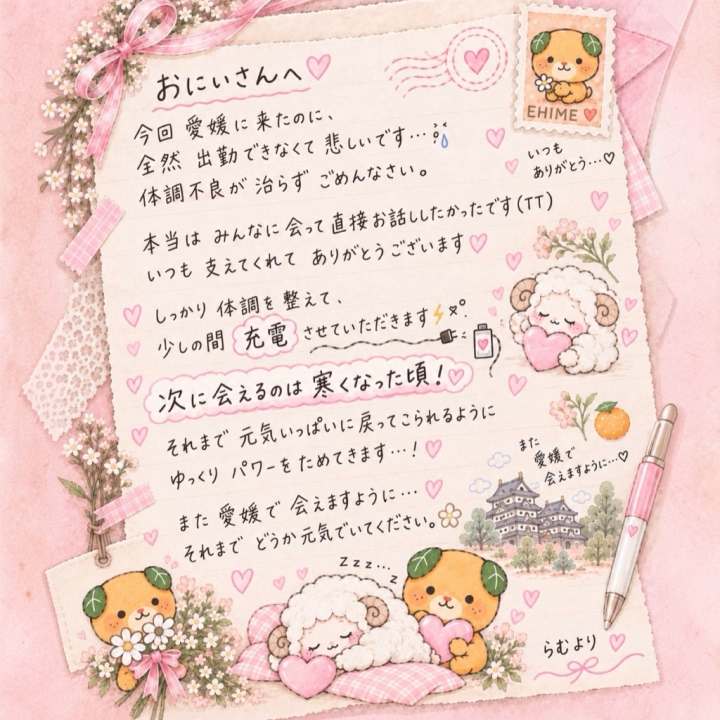 おにいさんへ
EHIME
いつも
ありがとう…♡
今回 愛媛に来たのに、
全然 出勤できなくて 悲しいです…
体調不良が 治らず ごめんなさい。
本当は みんなに会って 直接お話ししたかったです(TT)
いつも 支えてくれて ありがとうございます
しっかり 体調を 整えて、
少しの間 充電 させていただきます
次に会えるのは 寒くなった頃!
それまで 元気いっぱいに 戻ってこられるように
ゆっくり パワーを ためてきます…!
また
愛媛で
会えますように…♡
また 愛媛で 会えますように…
それまで どうか元気でいてください。
zzz...z
らむより